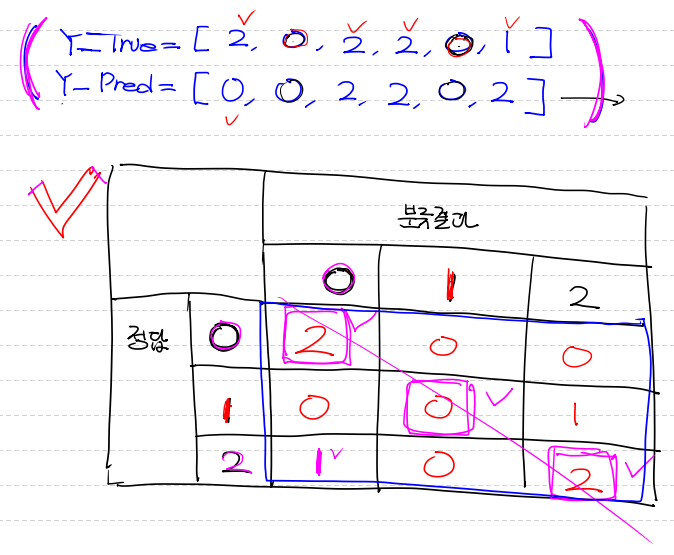 Y_True = [ 2, 0, 2, 2, 0, 1 ]
Y_Pred = [ 0, 0, 2, 2, 0, 2 ] →
분류결과
0 1 2
정답 0 2 0 0
1 0 0 1
2 1 0 2